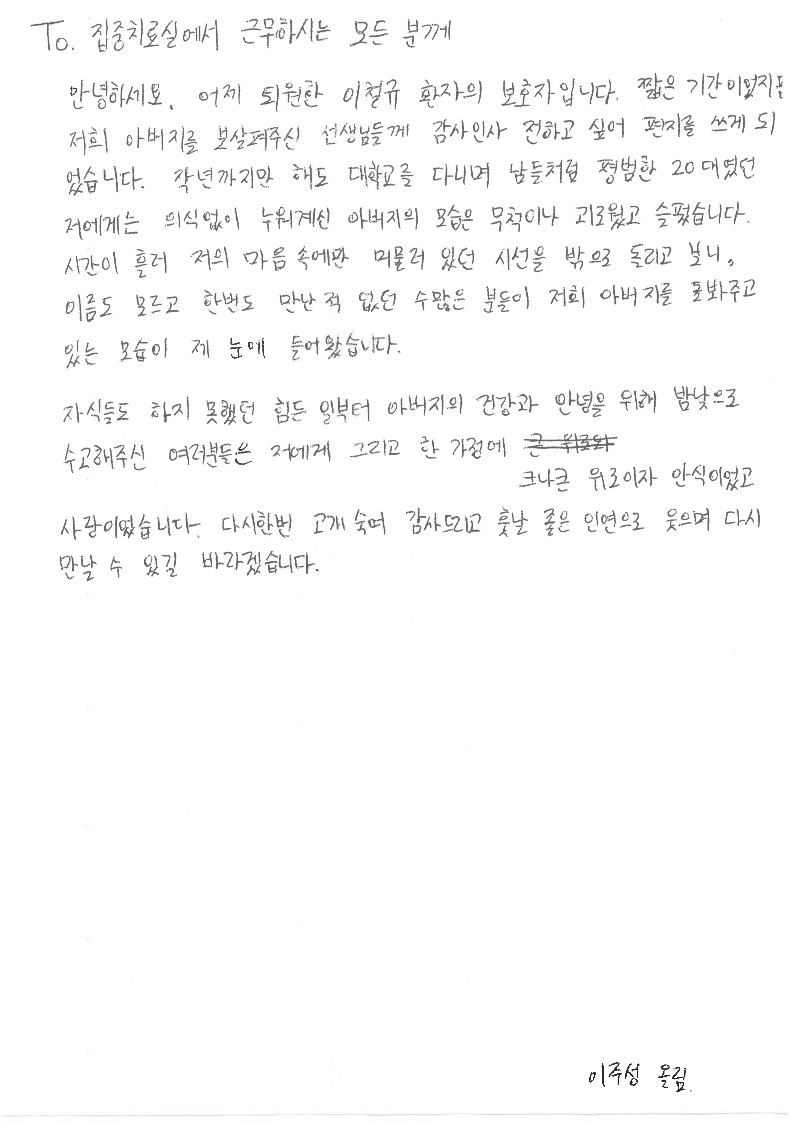 To. 집중치료실에서 근무하시는 모든 분께
안녕하세요. 어제 퇴원한 이철규 환자의 보호자입니다. 짧은 기간이었지만
저희 아버지를 보살펴주신 선생님들께 감사인사 전하고 싶어 편지를 쓰게 되
었습니다. 작년까지만 해도 대학교를 다니며 남들처럼 평범한 20대였던
저에게는 의식없이 누워계신 아버지의 모습은 무척이나 괴로웠고 슬펐습니다.
시간이 흘러 저의 마음 속에만 머물러 있던 시선을 밖으로 돌리고 보니,
이름도 모르고 한번도 만난 적 없던 수많은 분들이 저희 아버지를 돌봐주고
있는 모습이 제 눈에 들어왔습니다.
자식들도 하지 못했던 힘든 일부터 아버지의 건강과 안녕을 위해 밤낮으로
수고해주신 여러분들은 저에게 그리고 한 가정에 큰 위로와
크나큰 위로이자 안식이었고
사랑이었습니다. 다시한번 고개 숙여 감사드리고 훗날 좋은 인연으로 웃으며 다시
만날 수 있길 바라겠습니다.
이주성 올림.